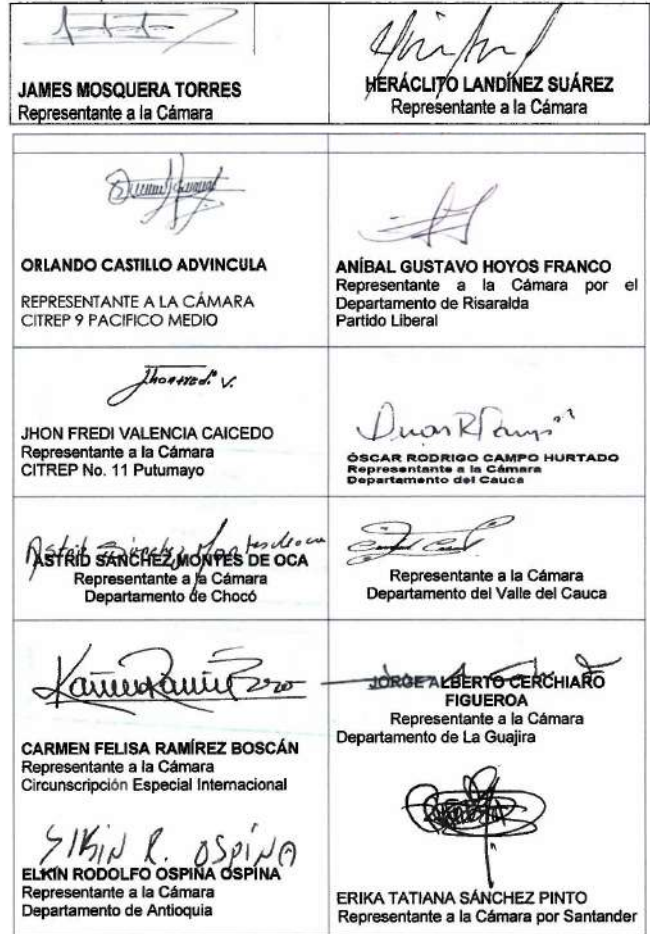 JAMES MOSQUERA TORRES
Representante a la Cámara
HERÁCLITO LANDÍNEZ SUÁREZ
Representante a la Cámara
ORLANDO CASTILLO ADVINCULA
REPRESENTANTE A LA CÁMARA
CITREP 9 PACIFICO MEDIO
ANÍBAL GUSTAVO HOYOS FRANCO
Representante a la Cámara por el
Departamento de Risaralda
Partido Liberal
Jhonfredi V.
JHON FREDI VALENCIA CAICEDO
Representante a la Cámara
CITREP No. 11 Putumayo
ÓSCAR RODRIGO CAMPO HURTADO
Representante a la Cámara
Departamento del Cauca
Astrid Sánchez Montes de oca
ASTRID SÁNCHEZ MONTES DE OCA
Representante a la Cámara
Departamento de Chocó
Representante a la Cámara
Departamento del Valle del Cauca
CARMEN FELISA RAMÍREZ BOSCÁN
Representante a la Cámara
Circunscripción Especial Internacional
JORGE ALBERTO CERCHIARO
FIGUEROA
Representante a la Cámara
Departamento de La Guajira
ElKiN R. OSPiNA
ELKIN RODOLFO OSPINA OSPINA
Representante a la Cámara
Departamento de Antioquia
ERIKA TATIANA SÁNCHEZ PINTO
Representante a la Cámara por Santander